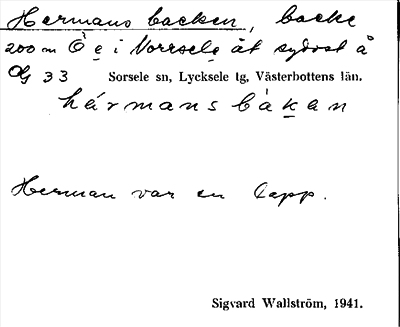 Hermans backen, backe
200 m Ö e i Norrsele åt sydost å
33 Sorsele sn, Lycksele tg, Västerbottens län.
hármans bàḵan
Herman var en lapp.
Sigvard Wallström, 1941.